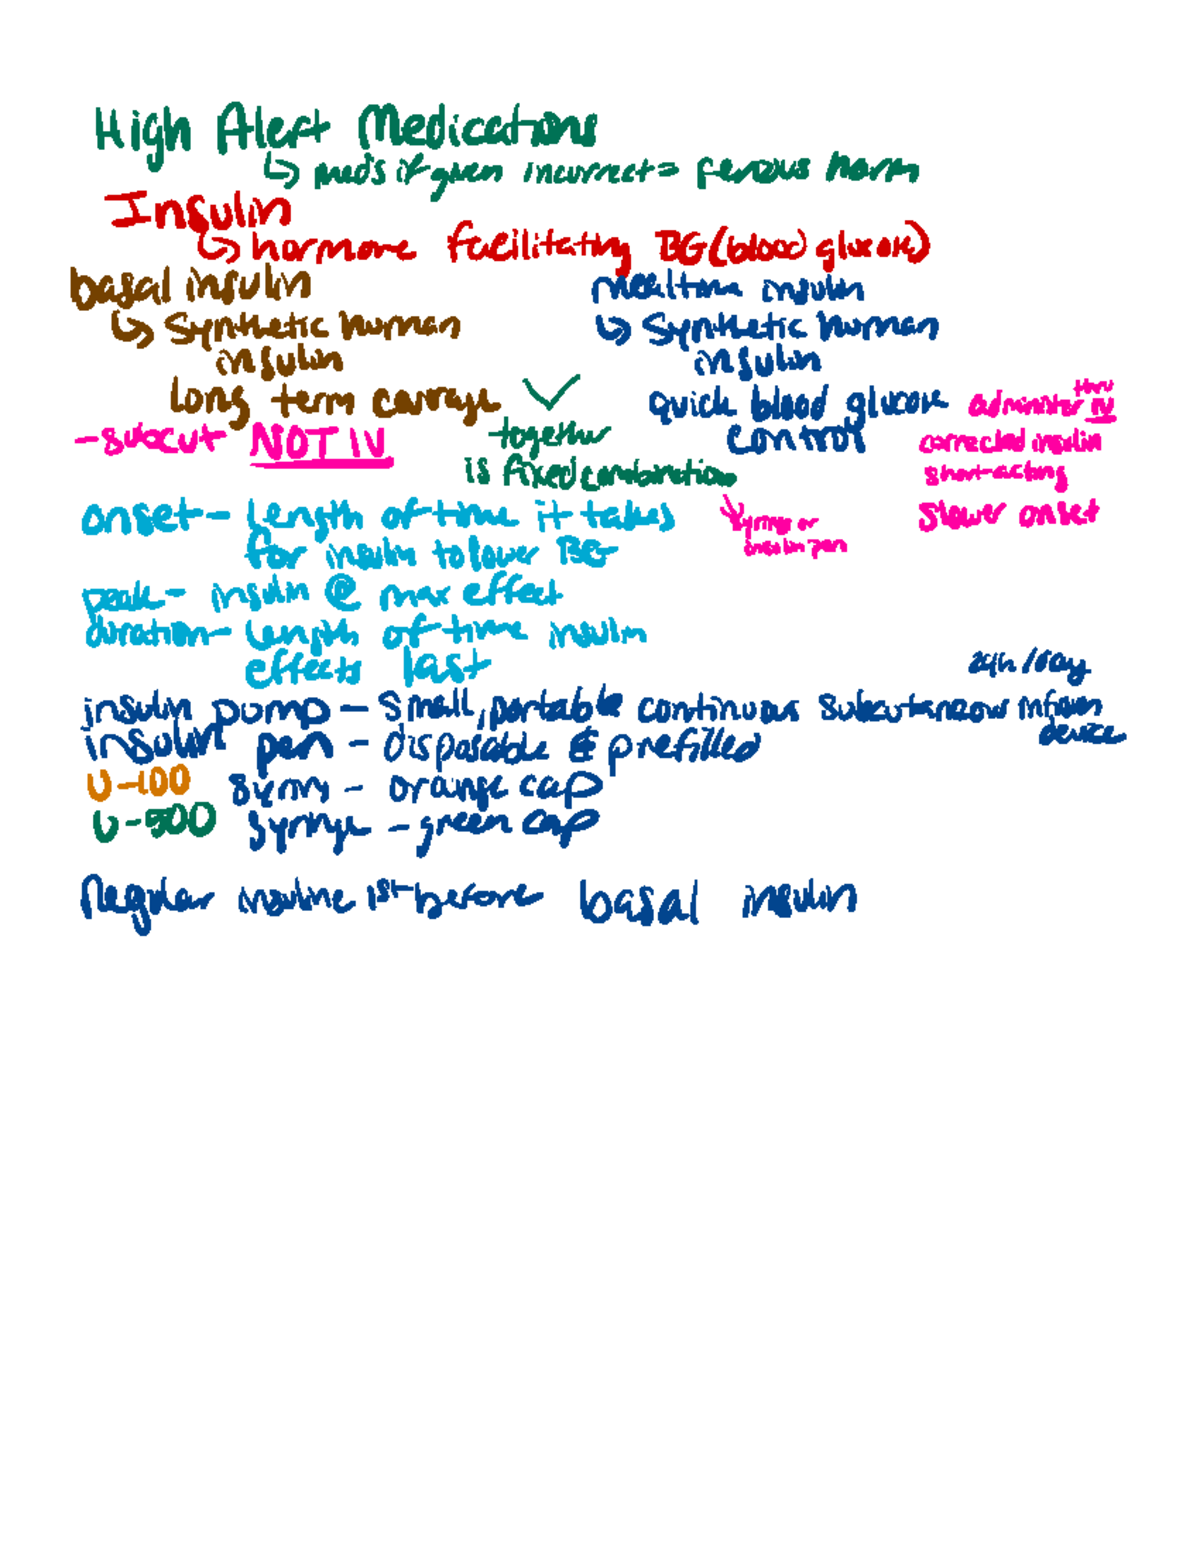 High Alert Medications
↳ meds if given incurrect = harm
Insulin
↳ hormone facilitating BG (blood glucose)
basal insulin
↳ Synthetic human
insulin
long term
- subcut NOT IV
mealtime insulin
↳ Synthetic human
insulin
quick blood glucose
control
administer thru IV
corrected insulin
short-acting
slower onset
✓
together
is fixed combination
↘ syringe or
insulin pen
onset - length of time it takes
for insulin to lower BG
peak - insulin @ max effect
duration - length of time insulin
effects last
24h/day
insulin pump - small, portable continuous subcutaneous infusion
device
insulin pen - disposable & prefilled
U-100 - orange cap
U-500 syringe - green cap
Regular insuline 1st before basal insulin